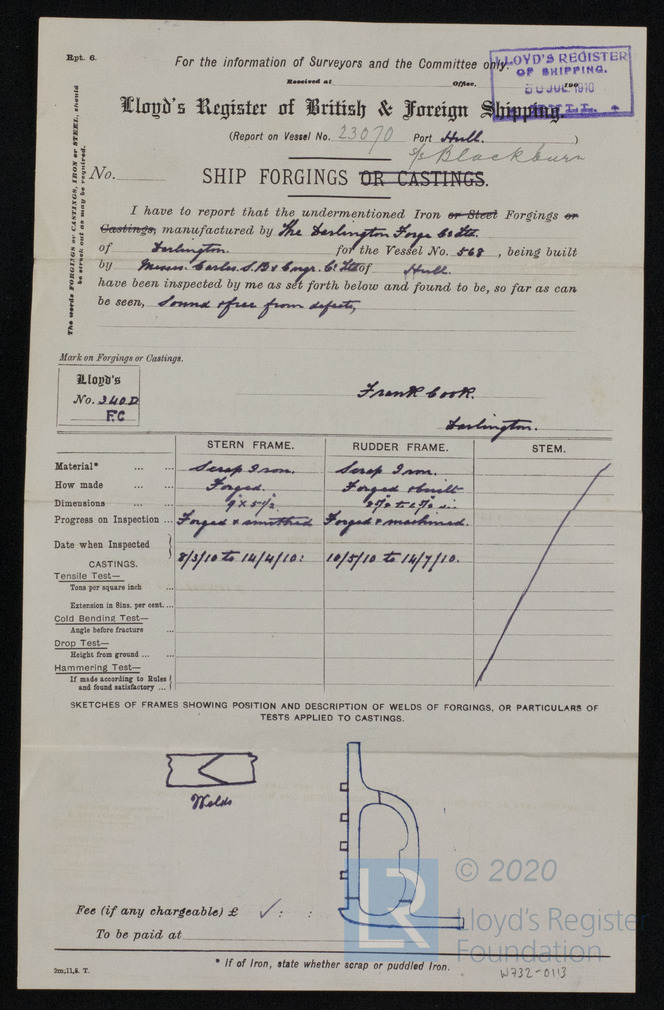 Rpt. 6.
For the information of Surveyors and the Committee only.
LLOYD'S REGISTER
OF SHIPPING.
JUL 1910
HULL
Received at Office, 190
Lloyd's Register of British & Foreign Shipping.
(Report on Vessel No. 23070 Port Hull. )
S/S Blackburn
No.
SHIP FORGINGS OR CASTINGS.
The words FORGINGS or CASTINGS, IRON or STEEL, should
be struck out as may be required.
I have to report that the undermentioned Iron or Steel Forgings or
Castings, manufactured by The Darlington Forge Co Ltd.
of Darlington. for the Vessel No. 568 , being built
by Messrs. Earles. S.B & Engr. Co. Ltd of Hull.
have been inspected by me as set forth below and found to be, so far as can
be seen, Sound & free from defects,
Mark on Forgings or Castings.
Lloyd's
No. 240D
F.C
Frank Cook.
Darlington.
STERN FRAME. RUDDER FRAME. STEM.
Material* ... ... Scrap Iron. Scrap Iron.
How made ... ... Forged. Forged & built
Dimensions ... ... 9" x 5 1/2
Progress on Inspection ... Forged & smithed Forged & machined.
Date when Inspected 8/3/10 to 14/4/10: 10/5/10 to 14/7/10.
CASTINGS.
Tensile Test—
Tons per square inch
Extension in 8ins. per cent. ...
Cold Bending Test—
Angle before fracture ...
Drop Test—
Height from ground ... ...
Hammering Test—
If made according to Rules
and found satisfactory ...
SKETCHES OF FRAMES SHOWING POSITION AND DESCRIPTION OF WELDS OF FORGINGS, OR PARTICULARS OF
TESTS APPLIED TO CASTINGS.
Welds
© 2020
LR
Lloyd's Register
Foundation
Fee (if any chargeable) £ ✓ : :
To be paid at
* If of Iron, state whether scrap or puddled Iron.
2m,11,8. T.
W732-0113